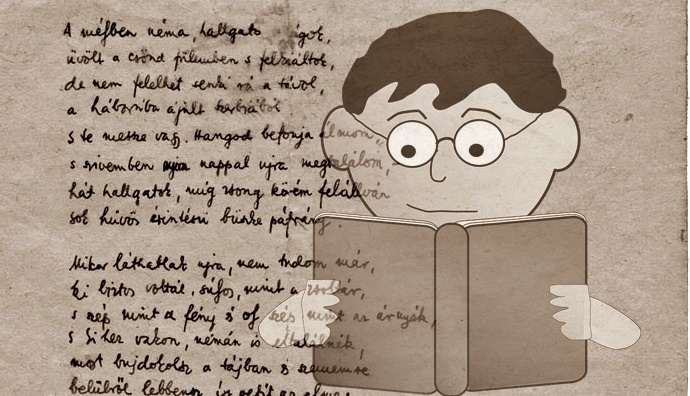 A mélyben néma, hallgató ágok,
üvölt a csönd fülemben s felkiáltok,
de nem felelhet senki rá a távol,
a háborúba ájult Szerbiából
s te messze vagy. Hangod befonja álmom,
s szivemben nappal ujra megtalálom,
hát hallgatok, míg zsong körém felállván
sok hűvös érintésü büszke páfrány.
Mikor láthatlak ujra, nem tudom már,
ki biztos voltál, súlyos, mint a zsoltár,
s szép mint a fény s oly szép mint az árnyék,
s kihez vakon, némán is eltalálnék,
most bujdokolsz a tájban s szememre
belülről lebbensz, így vetít az elme